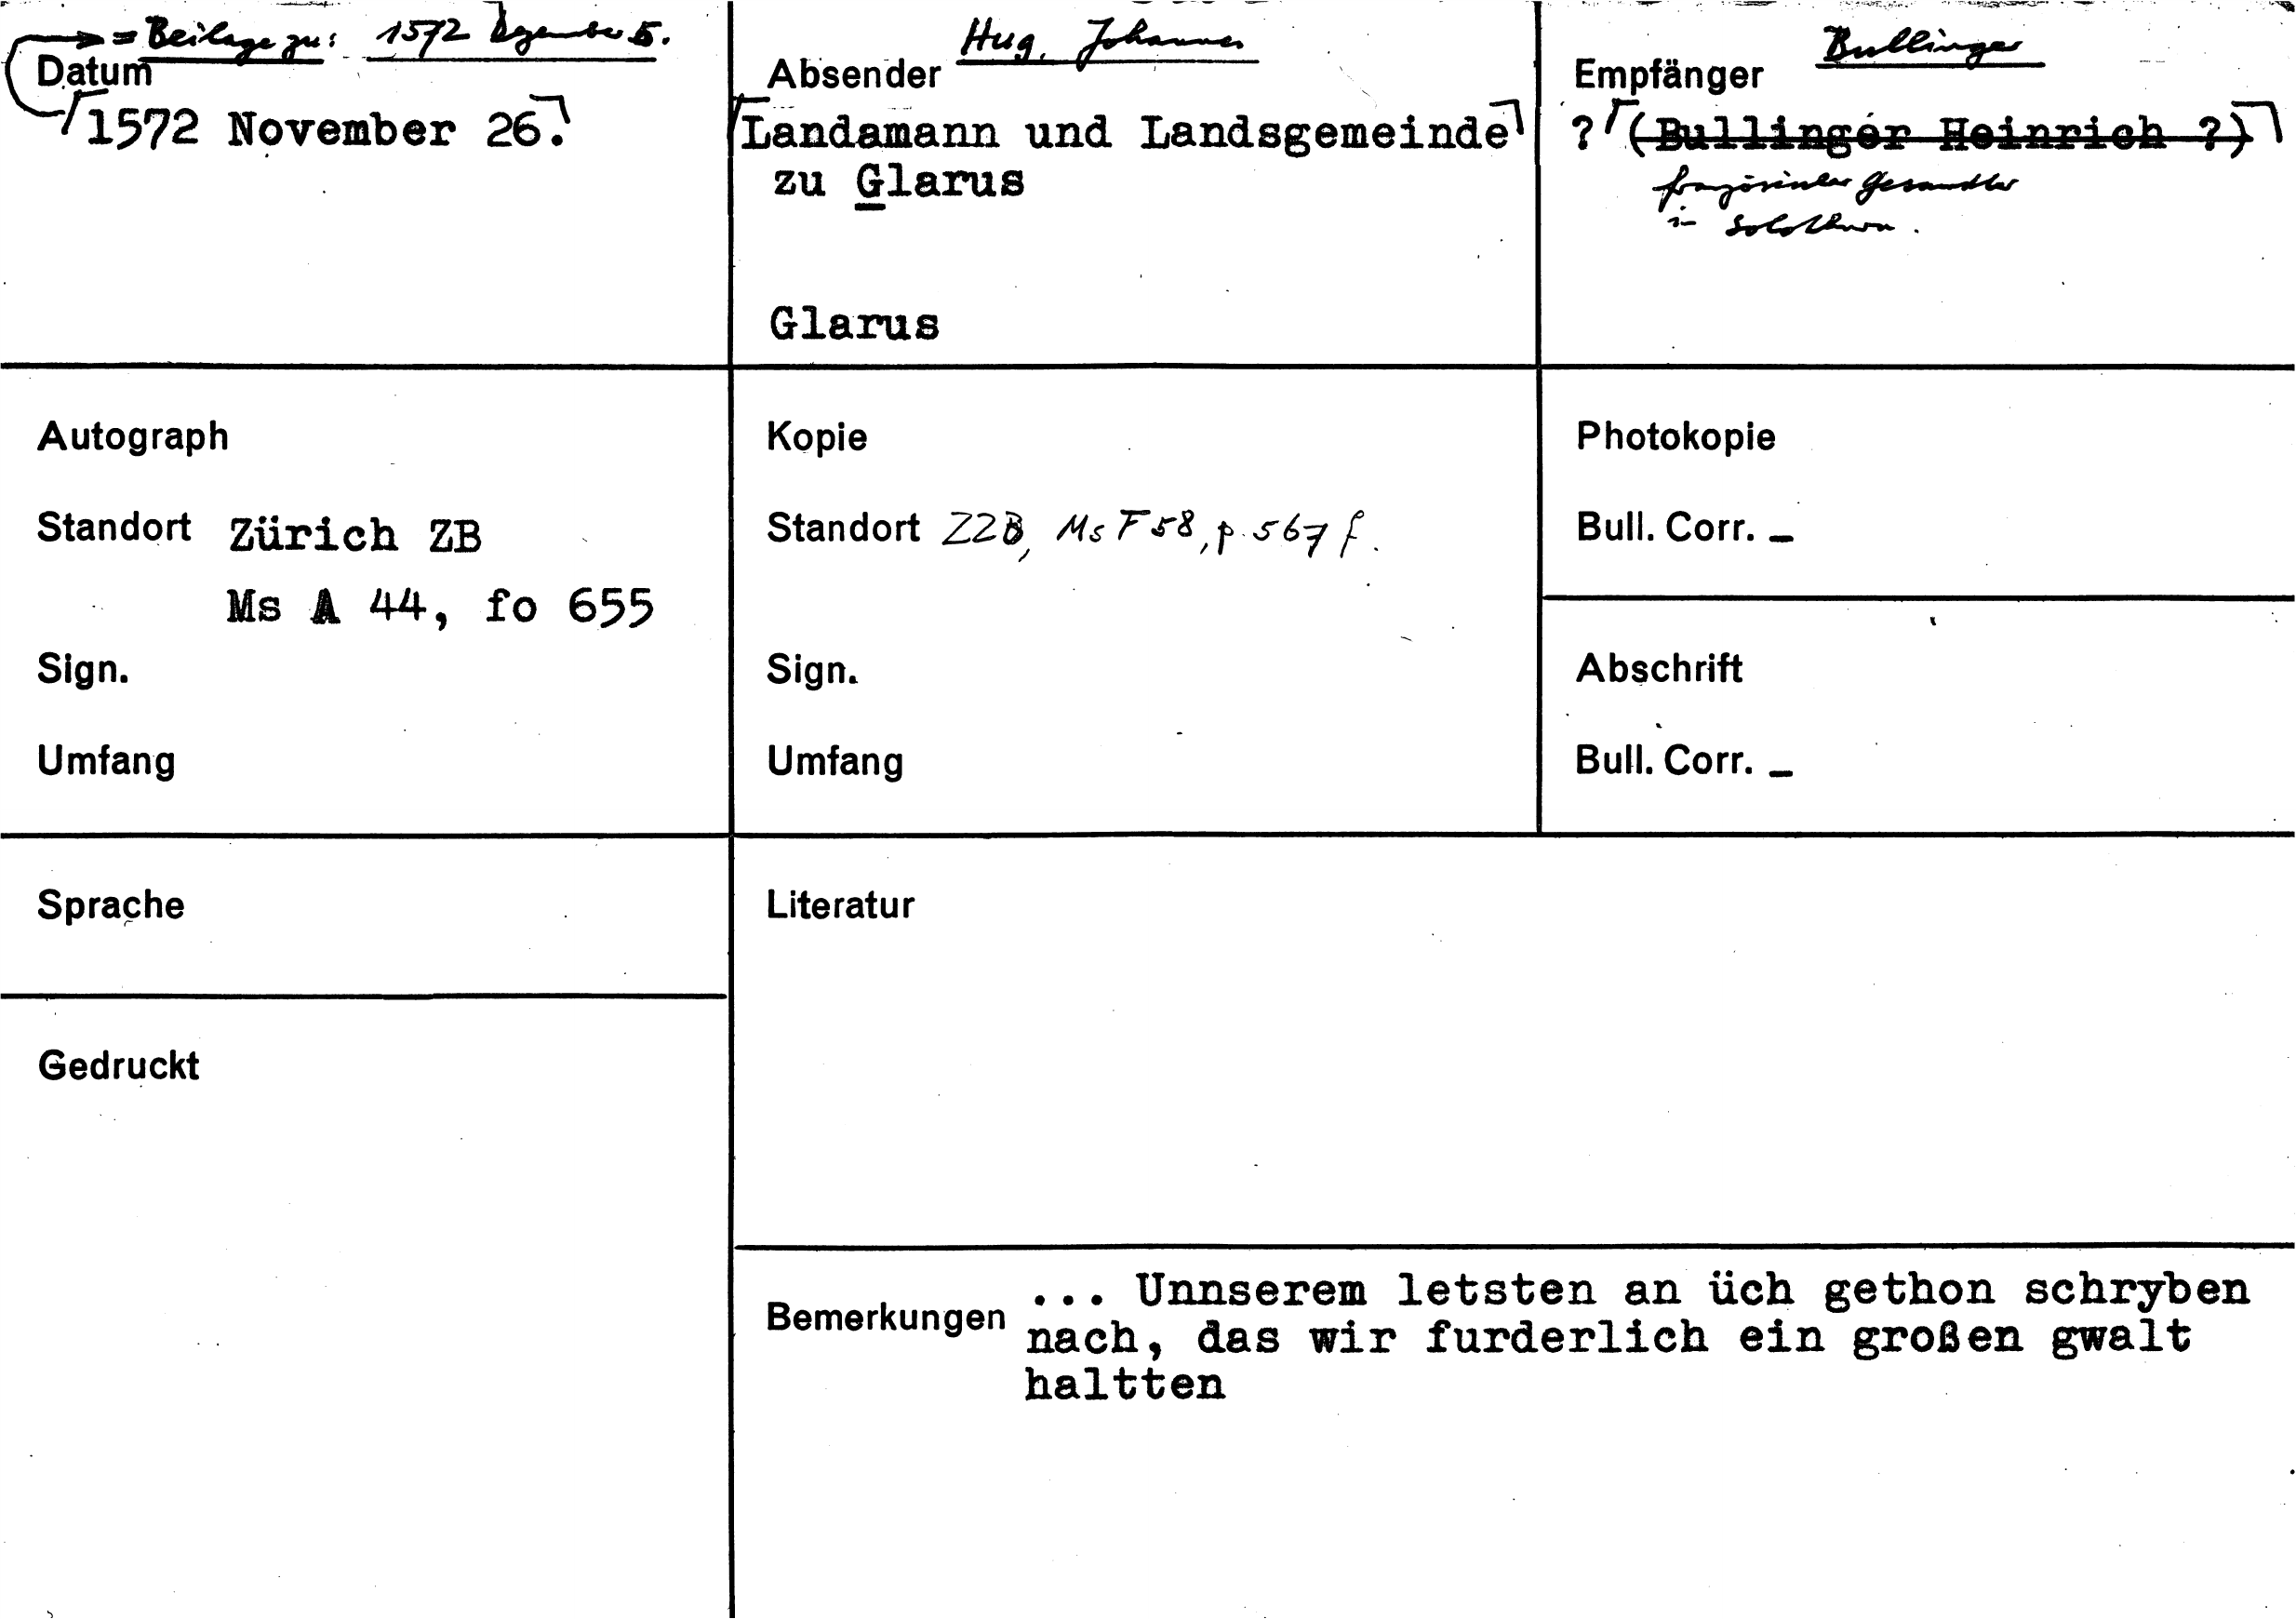 = Beilage zu: 1572 Dezember 5.
Datum
1572 November 26.
Hug, Johannes
Absender
Landamann und Landsgemeinde
zu Glarus
Glarus
Bullinger
Empfänger
? (Bullinger Heinrich ?)
französischer Gesandter
in Solothurn.
Autograph
Standort Zürich ZB
Ms A 44, fo 655
Sign.
Umfang
Kopie
Standort ZZB, Ms F 58, p. 567 f.
Sign.
Umfang
Photokopie
Bull. Corr. _
Abschrift
Bull. Corr. _
Sprache
Literatur
Gedruckt
Bemerkungen ... Unnserem letsten an üch gethon schryben
nach, das wir furderlich ein großen gwalt
haltten